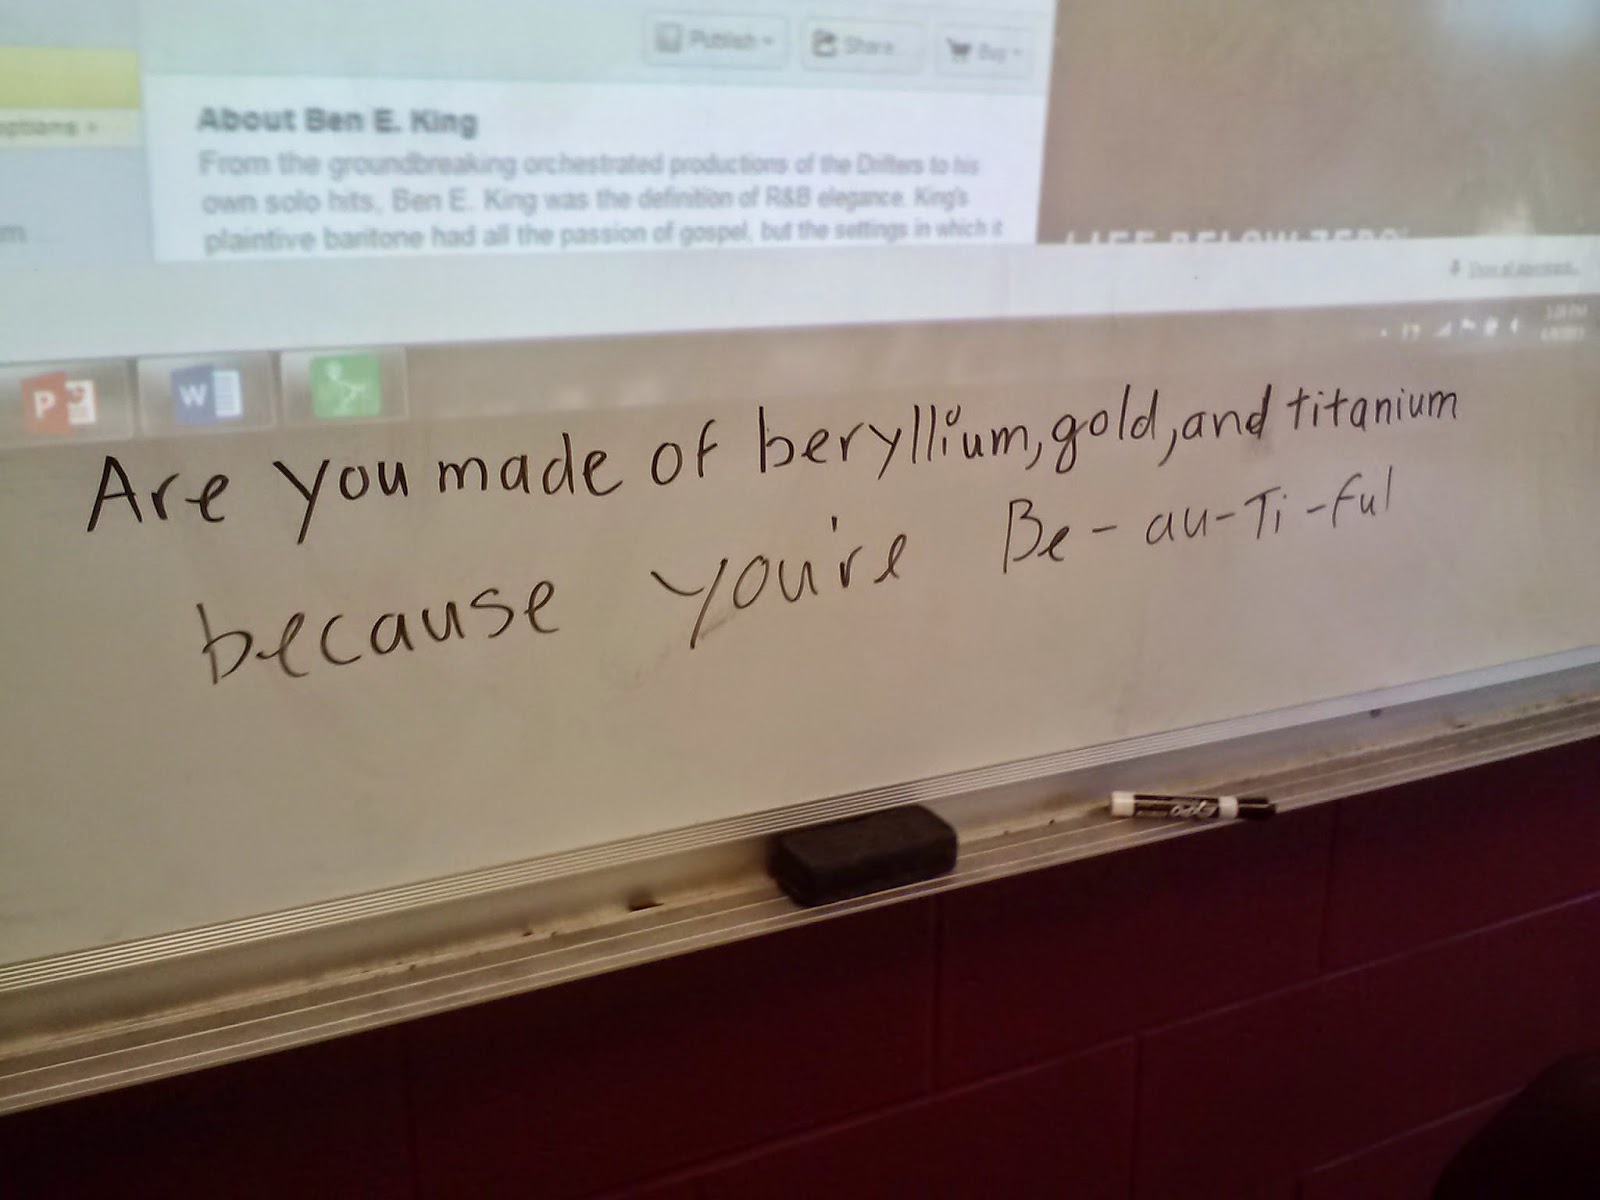 Publish
Share
Buy
options
About Ben E. King
From the groundbreaking orchestrated productions of the Drifters to his
own solo hits, Ben E. King was the definition of R&B elegance. King's
plaintive baritone had all the passion of gospel, but the settings in which it
LIFE BELOW ZERO
P
W
Are you made of beryllium, gold, and titanium
because you're Be-au-Ti-ful
EXPO